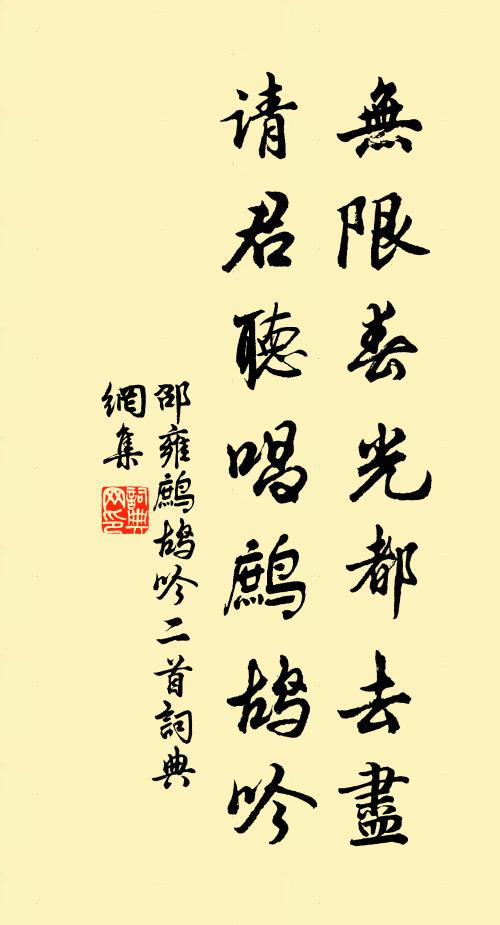 無限春光都去盡
请君聽唱鷓鴣吟
邵雍鷓鴣吟二首詞典
網集
詞典
网印